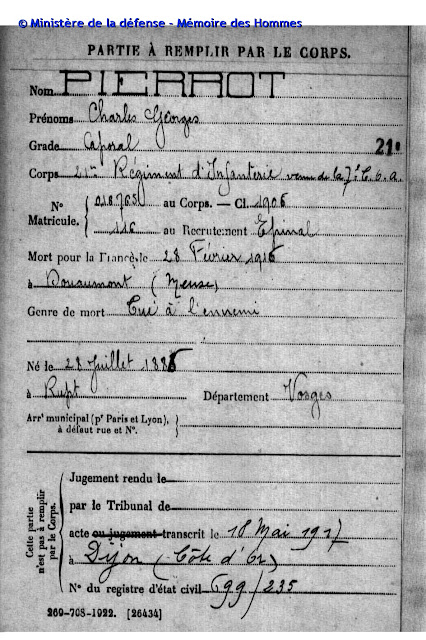 © Ministère de la défense - Mémoire des Hommes
PARTIE À REMPLIR PAR LE CORPS.
Nom PIERROT
Prénoms Charles Georges
Grade Caporal 21e
Corps 21me Régiment d'Infanterie venu de la 7e C.O.A.
N° Matricule. { 018765 au Corps. — Cl. 1906
116 au Recrutement Epinal
Mort pour la France le 28 Février 1916
à Douaumont (Meuse)
Genre de mort Tué à l'ennemi
Né le 28 Juillet 1886
à Rupt Département Vosges
Arrt municipal (pr Paris et Lyon),
à défaut rue et N°.
Cette partie n'est pas à remplir par le Corps.
Jugement rendu le
par le Tribunal de
acte ou jugement transcrit le 18 Mai 1917
à Dijon (Côte d'Or)
N° du registre d'état civil 699/235
269-708-1922. [26434]